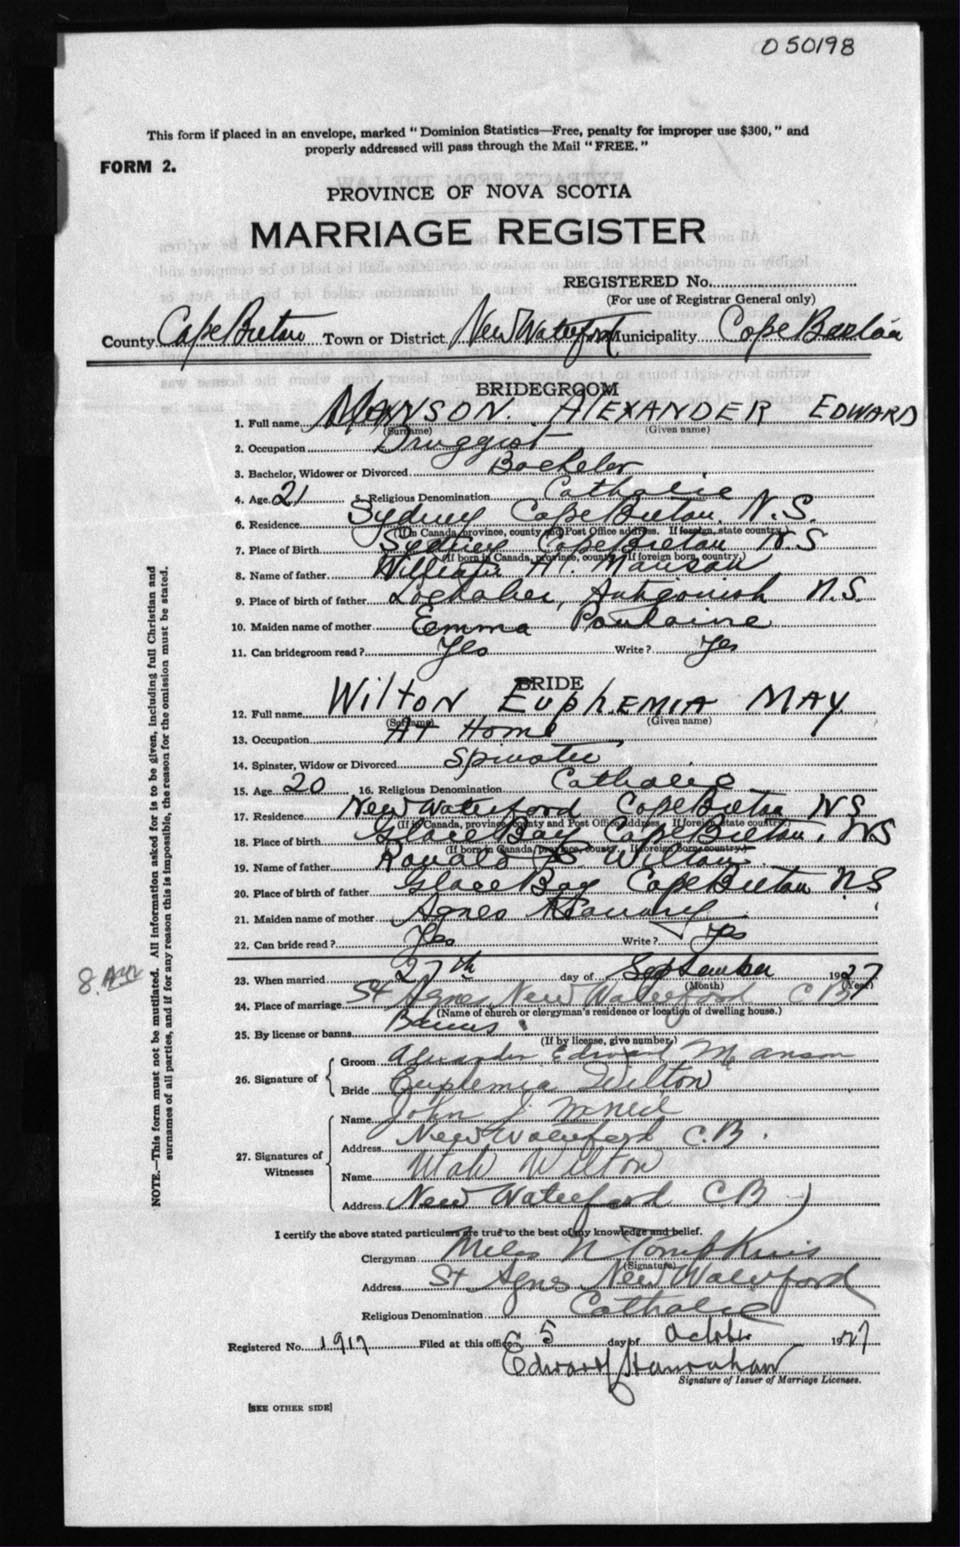 050198
This form if placed in an envelope, marked "Dominion Statistics—Free, penalty for improper use $300," and
properly addressed will pass through the Mail "FREE."
FORM 2.
PROVINCE OF NOVA SCOTIA
MARRIAGE REGISTER
REGISTERED No.
(For use of Registrar General only)
County Cape Breton Town or District New Waterford Municipality Cape Breton
BRIDEGROOM
1. Full name MANSON. ALEXANDER EDWARD
(Surname) (Given name)
2. Occupation Druggist
3. Bachelor, Widower or Divorced Bachelor
4. Age 21 5. Religious Denomination Catholic
6. Residence Sydney Cape Breton, N.S.
(If in Canada, province, county and Post Office address. If foreign, state country.)
7. Place of Birth Sydney Cape Breton N.S
(If born in Canada, province, county. If foreign born, country.)
8. Name of father William H. Manson
9. Place of birth of father Lochaber, Antigonish N.S.
10. Maiden name of mother Emma Poulaine
11. Can bridegroom read? Yes Write? Yes
BRIDE
12. Full name Wilton Euphemia May
(Surname) (Given name)
13. Occupation At Home
14. Spinster, Widow or Divorced Spinster
15. Age 20 16. Religious Denomination Catholic
17. Residence New Waterford Cape Breton N.S
(If in Canada, province, county and Post Office address. If foreign, state country.)
18. Place of birth Glace Bay Cape Breton, N.S
(If born in Canada, province, county. If foreign born, country.)
19. Name of father Ronald Wilton
20. Place of birth of father Glace Bay Cape Breton N.S
21. Maiden name of mother Agnes
22. Can bride read? Yes Write? Yes
23. When married 27th day of September 1927
(Month) (Year)
24. Place of marriage St Agnes New Waterford C.B.
(Name of church or clergyman's residence or location of dwelling house.)
25. By license or banns Banns.
(If by license, give number.)
26. Signature of
Groom Alexander Edward Manson
Bride Euphemia Wilton
27. Signatures of Witnesses
Name John J. McNeil
Address New Waterford C.B.
Name Wilton
Address New Waterford C.B
I certify the above stated particulars are true to the best of my knowledge and belief.
Clergyman Miles N Tompkins
(Signature)
Address St Agnes New Waterford
Religious Denomination Catholic
Registered No. 1917 Filed at this office 5 day of October 1927
Edward Hanrahan
Signature of Issuer of Marriage Licenses.
[SEE OTHER SIDE]
NOTE.—This form must not be mutilated. All information asked for is to be given, including full Christian and
surnames of all parties, and if for any reason this is impossible, the reason for the omission must be stated.